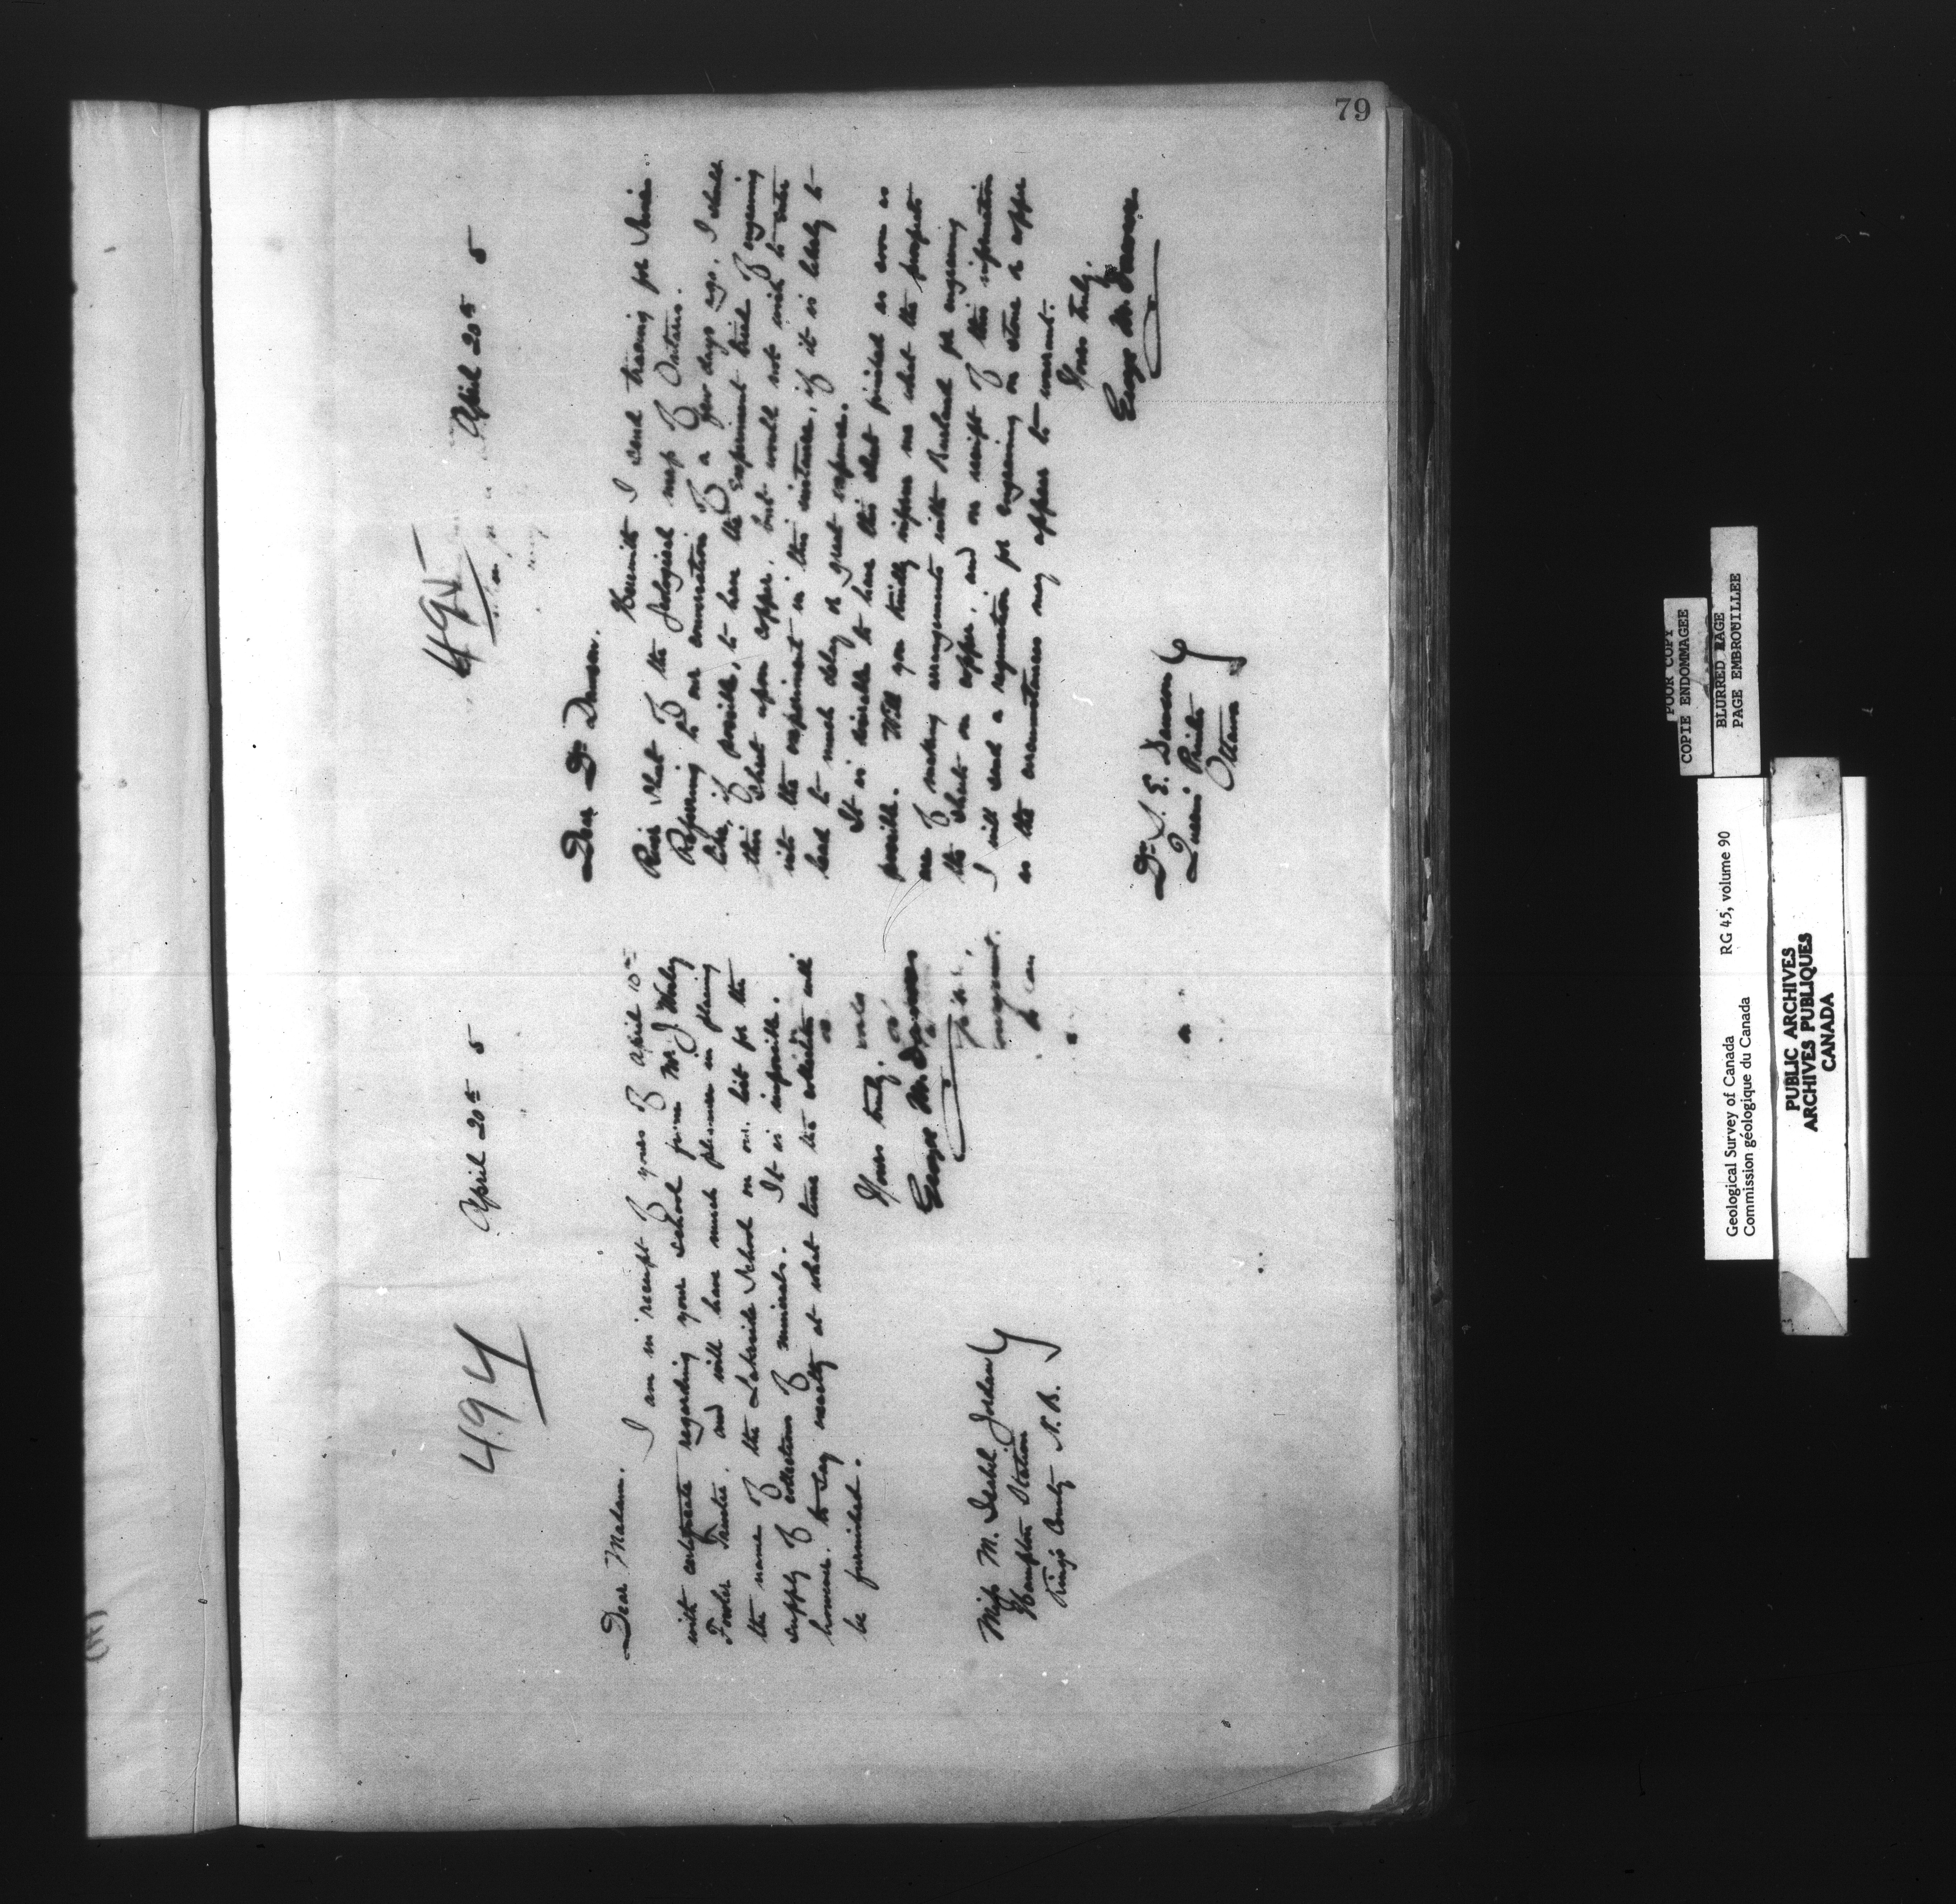 79
494
April 20th 5
Dear Madam.
I am in receipt of yours of April 10th
with certificate regarding your school from Mr. J
Fowler Trustee. and will have much pleasure in placing
the name of the Lakeside School on our list for the
supply of collection of minerals. It is impossible.
however. to say exactly at what time the collection will
be furnished.
Yours truly.
George M. Dawson
Miss M. Isabel Jordan
Hampton Station
Kings County N.B.
495
April 20th 5
Dear Dr Dawson.
Herewith I send tracing for Seine
River sheet of the Geological map of Ontario.
Referring to our conversation of a few days ago. I should
like, if possible, to have the experiment tried of engraving
this sheet upon copper. but would not wish to enter
into the experiment in this instance, if it is likely to
lead to much delay or great expense.
It is desirable to have this sheet finished as soon as
possible. Will you kindly inform me what the prospects
are of making arrangements with for engraving
the sheet on copper. and on receipt of this information
I will send a requisition for engraving on stone or copper
as the circumstances may appear to warrant.
Yours truly.
George M. Dawson
Dr. S. E. Dawson
Queen's Printer
Ottawa
POOR COPY
COPIE ENDOMMAGEE
BLURRED IMAGE
PAGE EMBROUILLEE
Geological Survey of Canada RG 45, volume 90
Commission géologique du Canada
PUBLIC ARCHIVES
ARCHIVES PUBLIQUES
CANADA